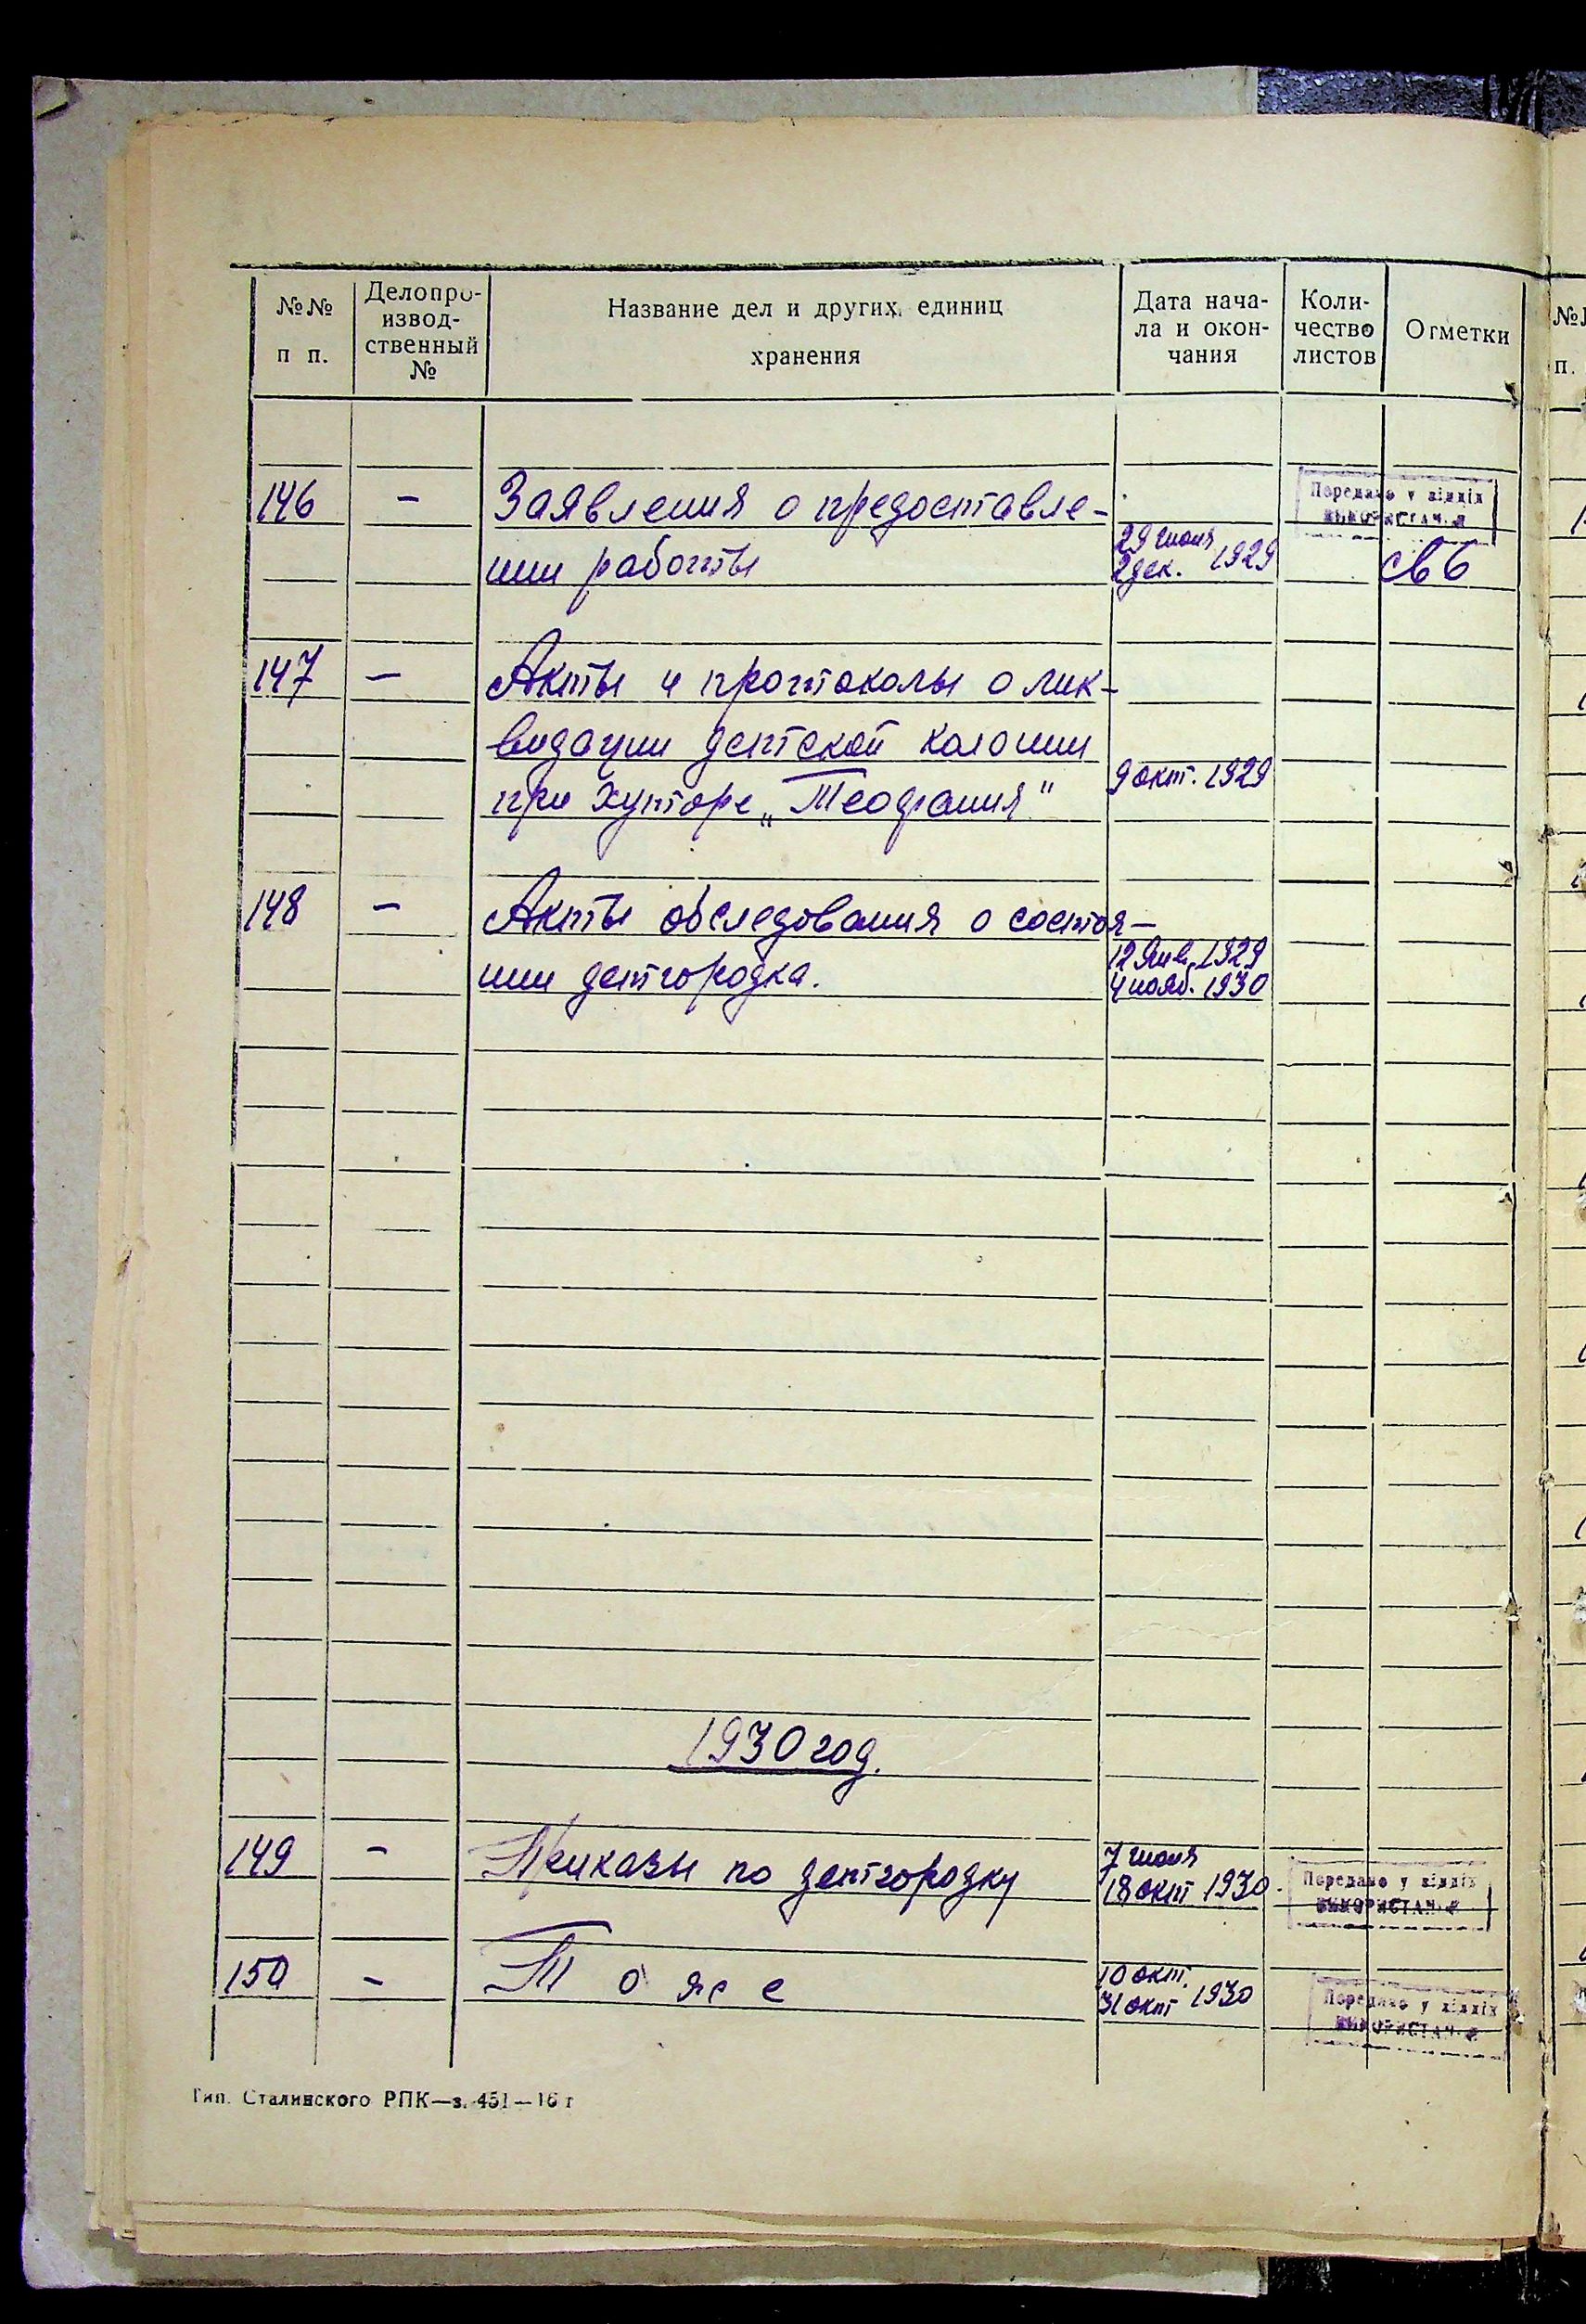 №№ п п.
Делопро-
извод-
ственный
№
Название дел и других единиц
хранения
Дата нача-
ла и окон-
чания
Коли-
чество
листов
Отметки
146 - Заявления о предоставле-
нии работы
29 июня
2 дек. 1929
Передано у відділ
використан.
св 6
147 - Акты и протоколы о лик-
видации детской колонии
при хуторе „Теофания"
9 окт. 1929
148 - Акты обследования о состоя-
нии детгородка.
12 янв. 1929
4 нояб. 1930
1930 год.
149 - Приказы по детгородку
7 июня
18 окт 1930.
Передано у відділ
використан.
150 - То же
10 окт.
31 окт 1930
Передано у відділ
використан.
Тип. Сталинского РПК—з. 451—16 г
№
п.